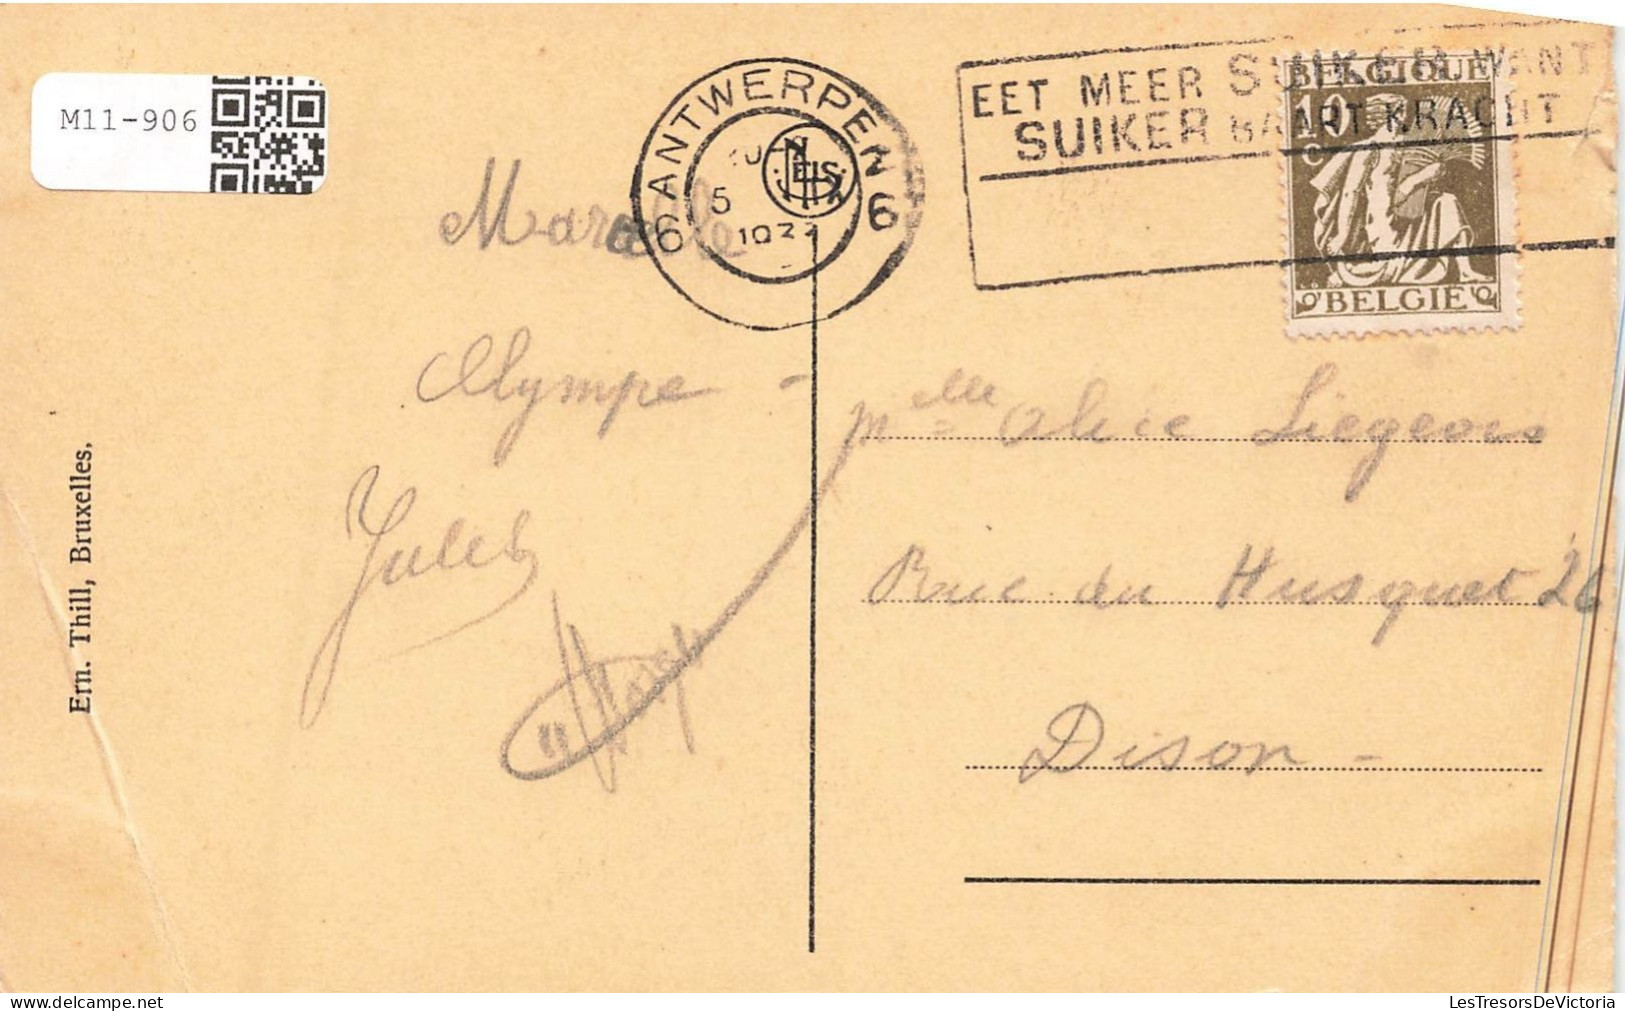 M11-906
ANTWERPEN
6 6
5
193
NELS
EET MEER SUIKER WANT
SUIKER BAART KRACHT
BELGIQUE
10
C
BELGIE
Marcelle
Olympe -
Jules
Melle Alice Liegeois
Rue du Husquet 26
Dison -
Ern. Thill, Bruxelles.
LesTresorsDeVictoria